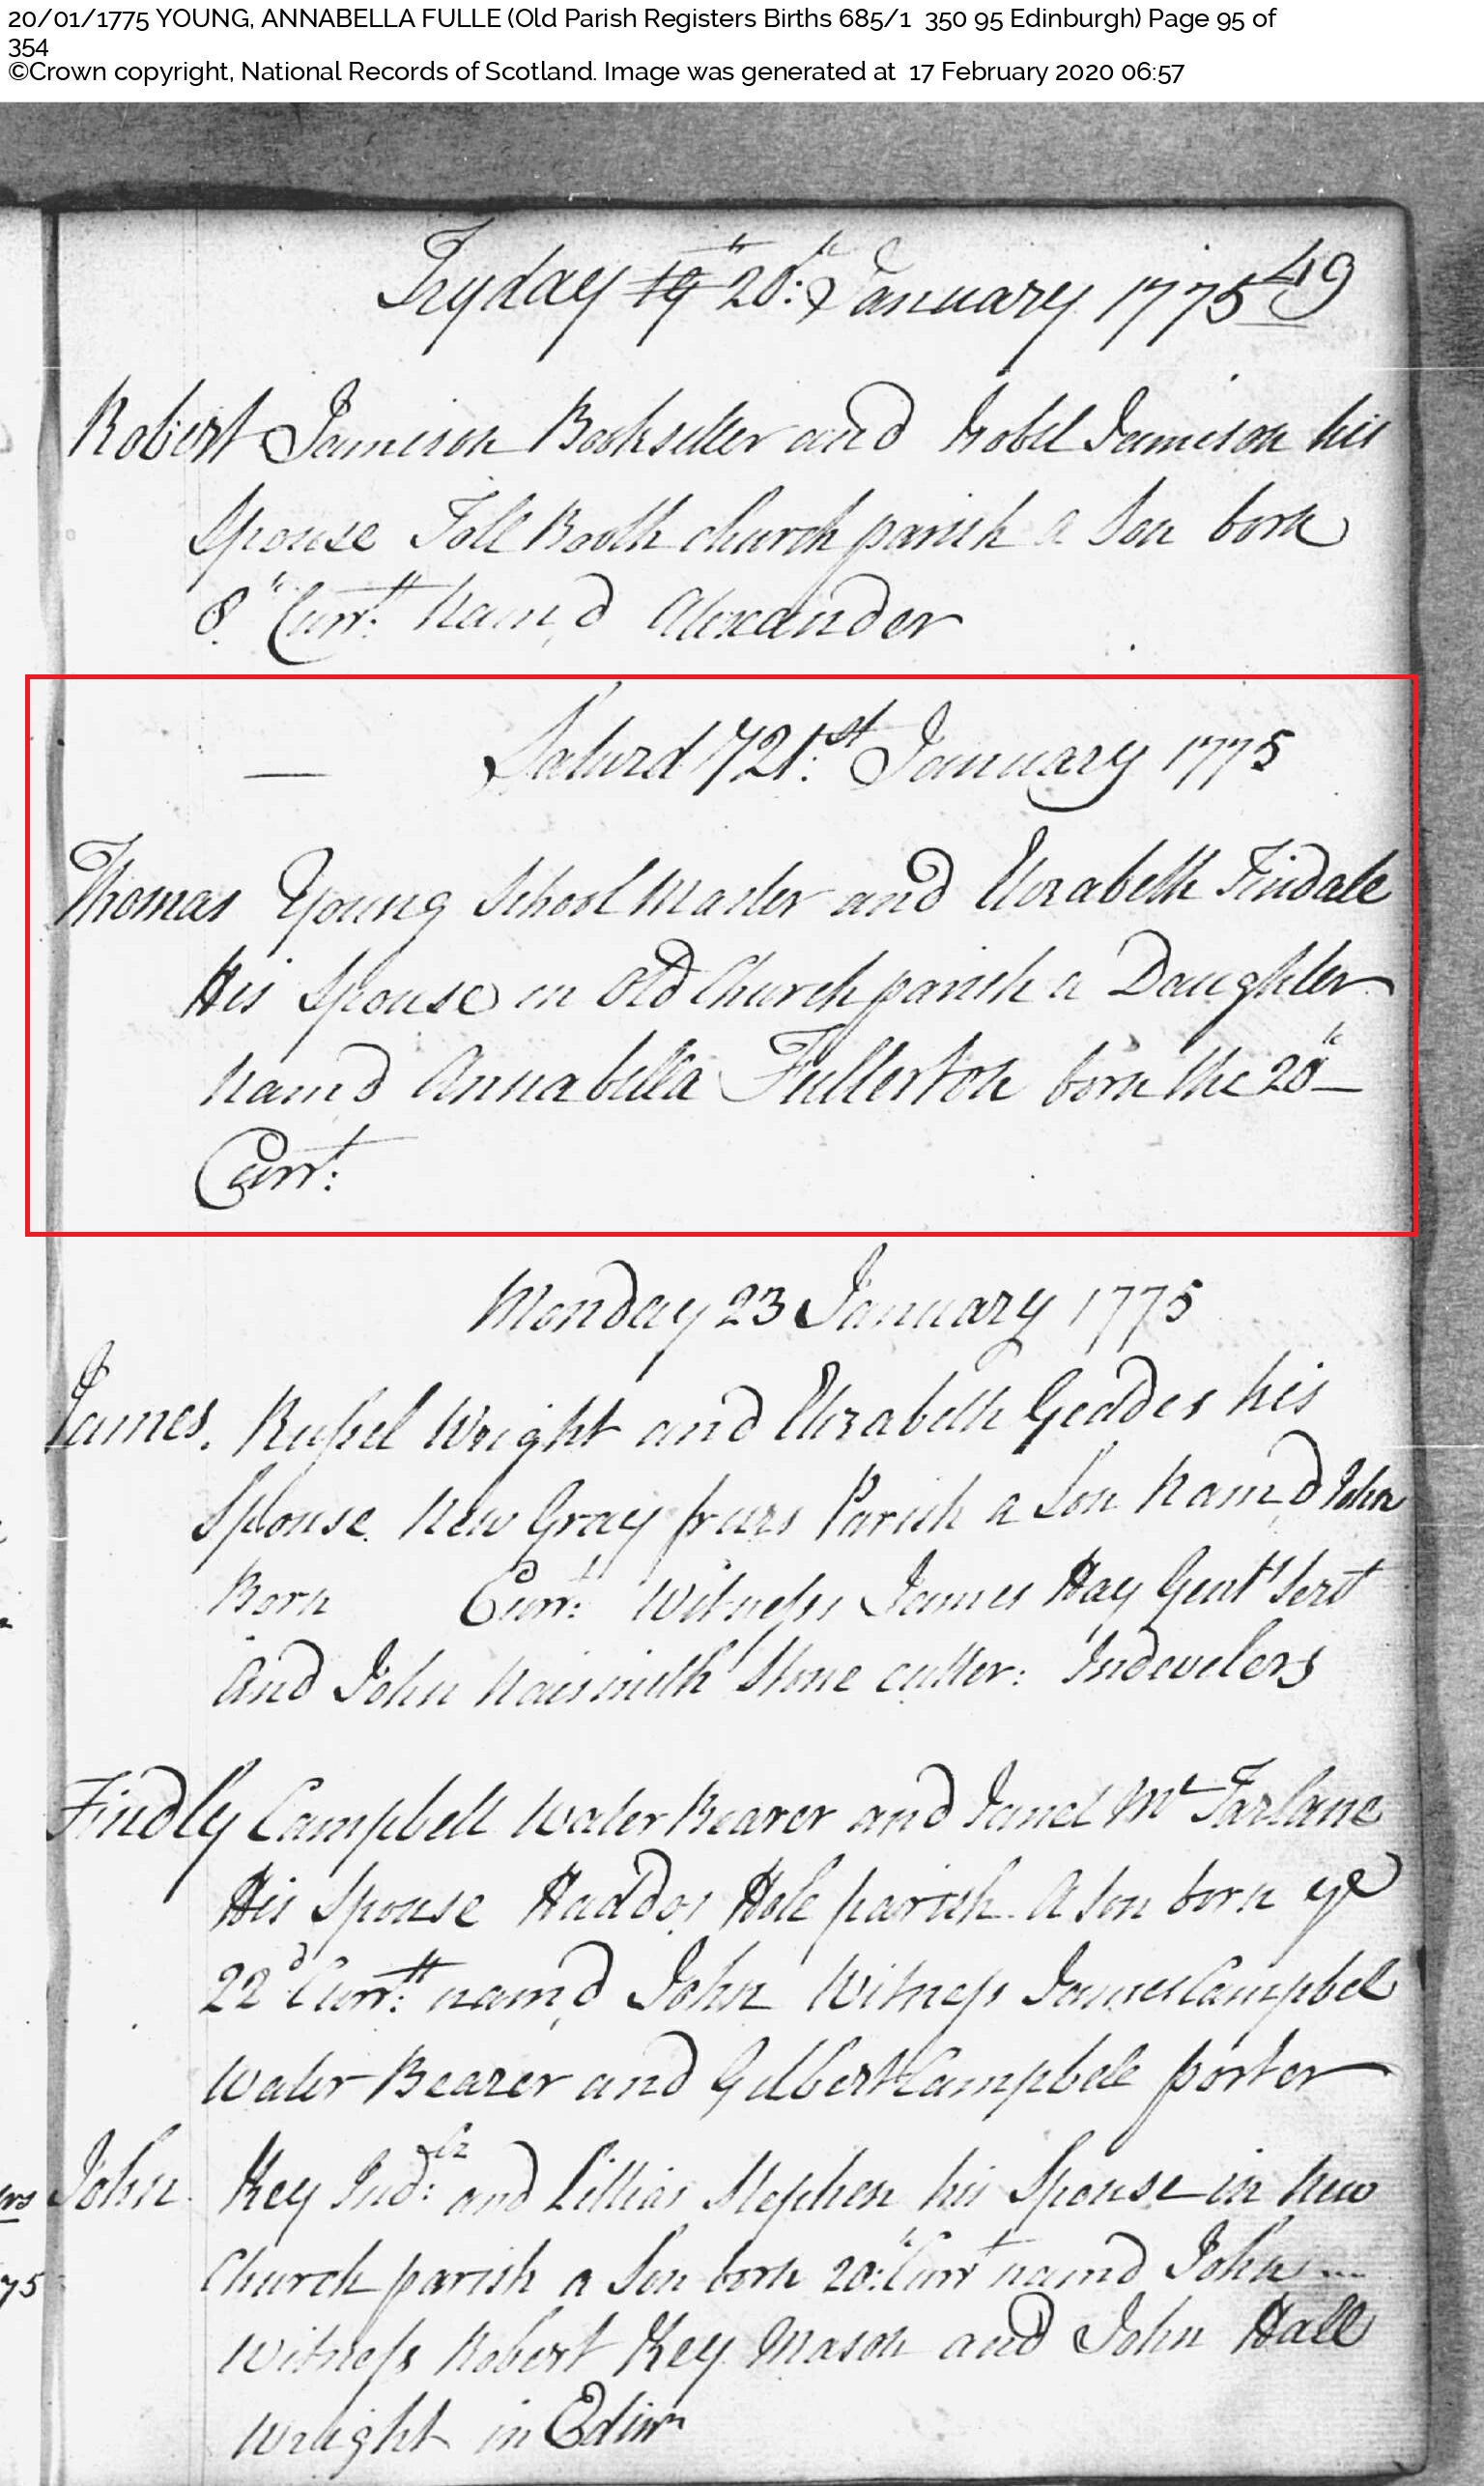 20/01/1775 YOUNG, ANNABELLA FULLE (Old Parish Registers Births 685/1 350 95 Edinburgh) Page 95 of
354
©Crown copyright, National Records of Scotland. Image was generated at 17 February 2020 06:57
Fryday 19 20th: January 1775 49
Robert Jamieson Bookseller and Isobel Jamieson his
Spouse Toll Booth church parish a Son born
8th Currtt: Nam,d Alexander
— Saturd 21:st January 1775
Thomas Young School Master and Elizabeth Tindale
His Spouse in Old Church parish a Daughter
Namd Annabella Fullerton born the 20th —
Currt:
Monday 23 January 1775
James. Russel Wright and Elizabeth Geddes his
Spouse New Gray friars Parish a Son Nam,d John
Born Currt: Witness James Hay Gentls Servt
and John Naismith Stone cutter: Indwelers
Findly Campbell Water Bearer and Janet Mc Farlane
His Spouse Haddos Hole parish A Son born ye
22d Currtt: nam,d John Witness James Campbel
Water Bearer and Gilbert Campbele porter
John Key Ind: and Lillias Stephen his Spouse in New
Church parish a Son born 20th: Currt namd John
Witness Robert Key Mason and John Hall
Wright in Edinr
75